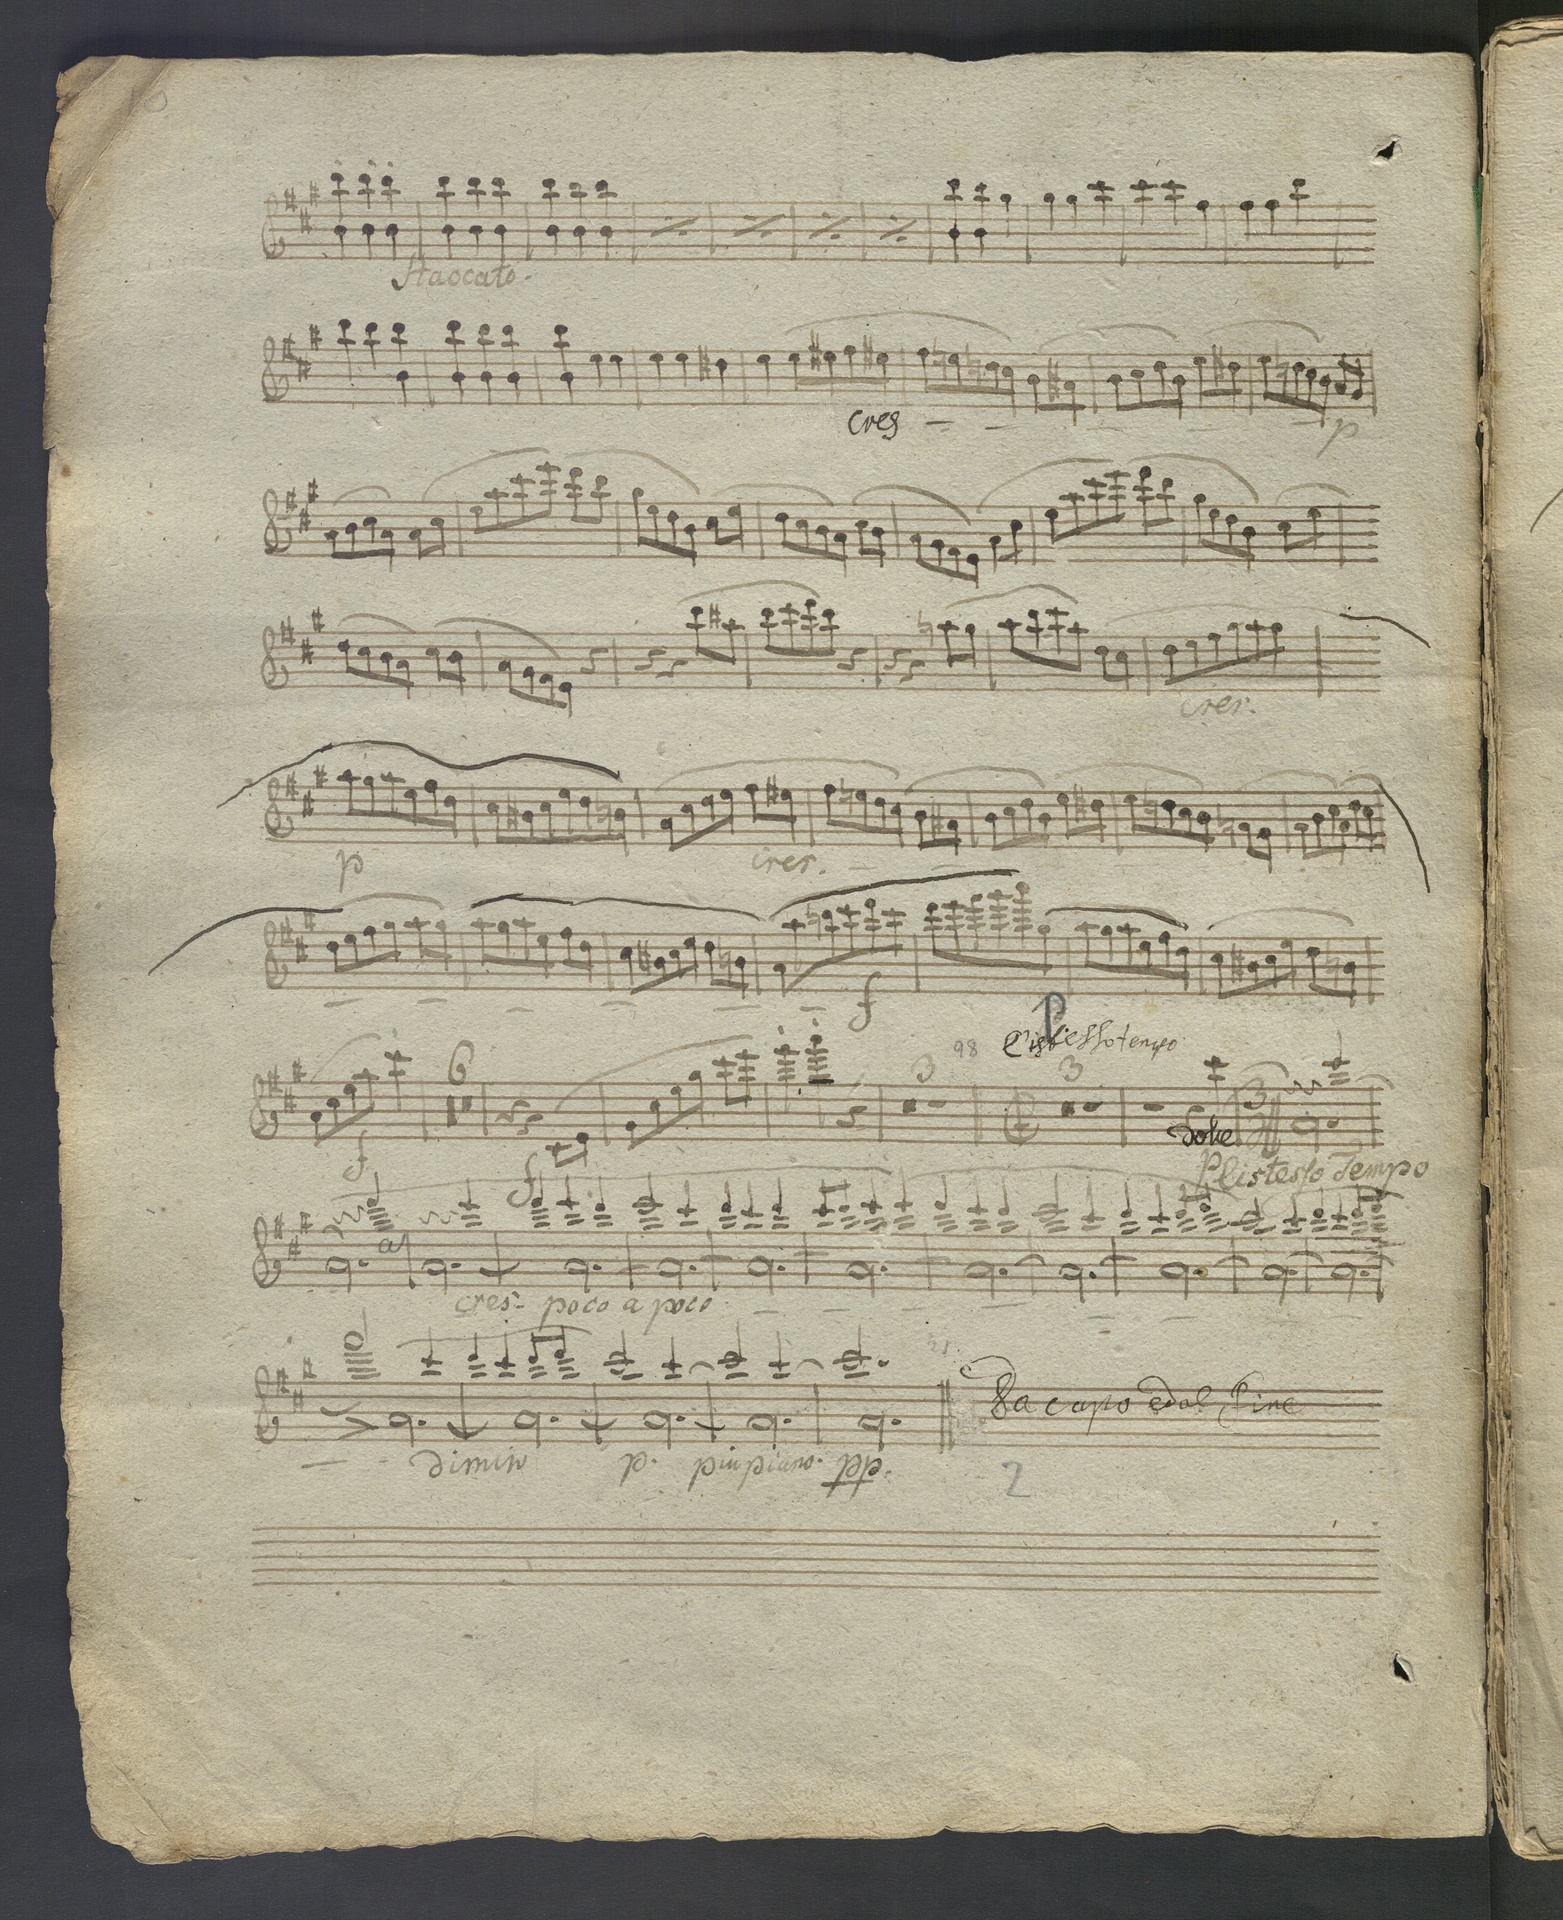 Staocato.
cres
p
cres.
p
cres.
f
P
6
98
L'istesso tempo
3
3
3
f
f
dolce
P listesso Tempo
cres. poco a poco
dimin p. piu piano. pp.
Da capo e dal Fine
2